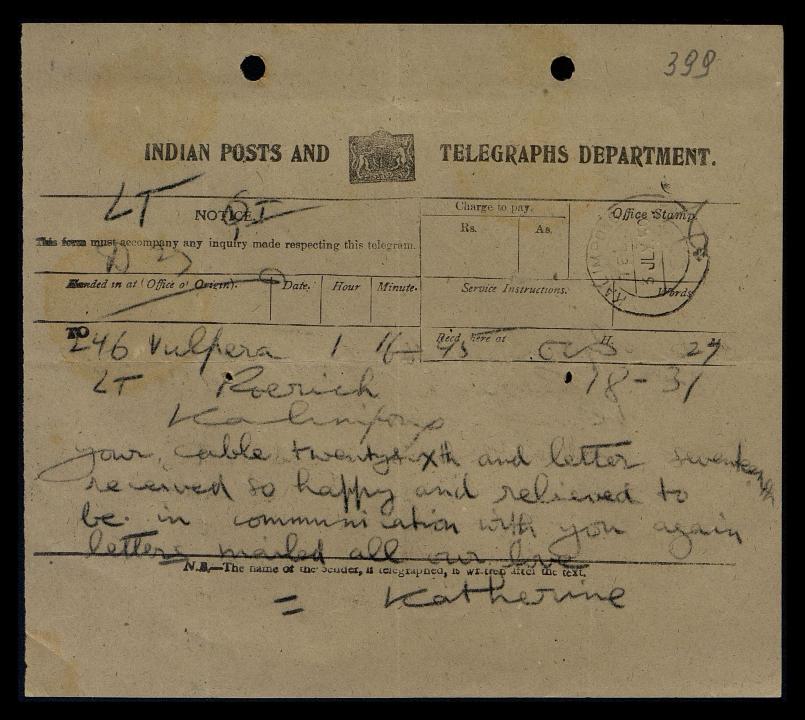 399
INDIAN POSTS AND TELEGRAPHS DEPARTMENT.
LT
NOTICE.
This form must accompany any inquiry made respecting this telegram.
Charge to pay.
Rs. As.
Office Stamp.
Handed in at (Office of Origin). Date. Hour Minute.
Service Instructions. Words.
TO
Recd here at H. M.
246 Vulpera 1 16 45 27
LT Roerich 18-31
Kalimpong
your cable twentysixth and letter seventeenth
received so happy and relieved to
be in communication with you again
letters mailed all our love
N.B.—The name of the Sender, if telegraphed, is written after the text.
= Katherine